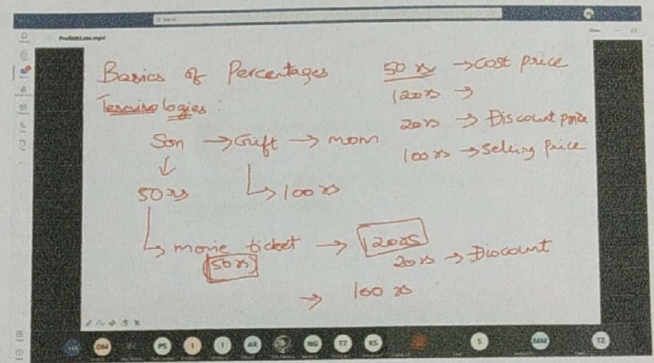 Search
Profit&Loss.mp4
Basics of Percentages
Terminologies :
Son → Gift → mom
↓
50 rs
↳ 100 rs
↳ movie ticket → 120 rs
50 rs
20 rs → Discount
→ 100 rs
50 rs → Cost price
120 rs →
20 rs → Discount price
100 rs → Selling price
DM
PS
L
I
AR
NG
TT
KS
S
MM
TZ